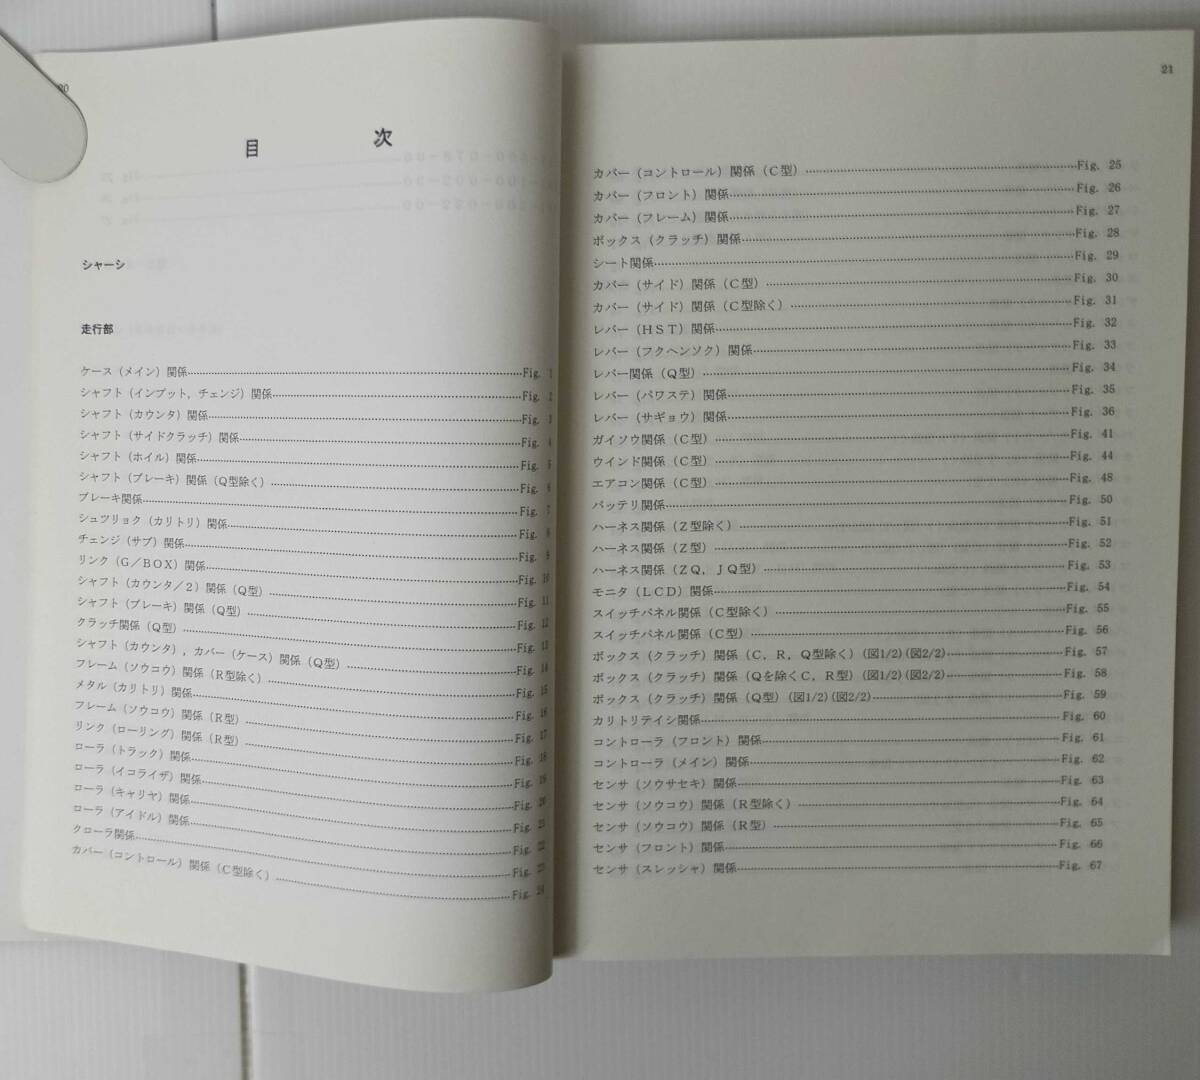 20
目 次
シャーシ
走行部
ケース（メイン）関係……Fig. 1
シャフト（インプット，チェンジ）関係……Fig. 2
シャフト（カウンタ）関係……Fig. 3
シャフト（サイドクラッチ）関係……Fig. 4
シャフト（ホイル）関係……Fig. 5
シャフト（ブレーキ）関係（Q型除く）……Fig. 6
ブレーキ関係……Fig. 7
シュツリョク（カリトリ）関係……Fig. 8
チェンジ（サブ）関係……Fig. 9
リンク（G／BOX）関係……Fig. 10
シャフト（カウンタ／2）関係（Q型）……Fig. 11
シャフト（ブレーキ）関係（Q型）……Fig. 12
クラッチ関係（Q型）……Fig. 13
シャフト（カウンタ），カバー（ケース）関係（Q型）……Fig. 14
フレーム（ソウコウ）関係（R型除く）……Fig. 15
メタル（カリトリ）関係……Fig. 16
フレーム（ソウコウ）関係（R型）……Fig. 17
リンク（ローリング）関係（R型）……Fig. 18
ローラ（トラック）関係……Fig. 19
ローラ（イコライザ）関係……Fig. 20
ローラ（キャリヤ）関係……Fig. 21
ローラ（アイドル）関係……Fig. 22
クローラ関係……Fig. 23
カバー（コントロール）関係（C型除く）……Fig. 24
21
カバー（コントロール）関係（C型）……Fig. 25
カバー（フロント）関係……Fig. 26
カバー（フレーム）関係……Fig. 27
ボックス（クラッチ）関係……Fig. 28
シート関係……Fig. 29
カバー（サイド）関係（C型）……Fig. 30
カバー（サイド）関係（C型除く）……Fig. 31
レバー（HST）関係……Fig. 32
レバー（フクヘンソク）関係……Fig. 33
レバー関係（Q型）……Fig. 34
レバー（パワステ）関係……Fig. 35
レバー（サギョウ）関係……Fig. 36
ガイソウ関係（C型）……Fig. 41
ウインド関係（C型）……Fig. 44
エアコン関係（C型）……Fig. 48
バッテリ関係……Fig. 50
ハーネス関係（Z型除く）……Fig. 51
ハーネス関係（Z型）……Fig. 52
ハーネス関係（ZQ，JQ型）……Fig. 53
モニタ（LCD）関係……Fig. 54
スイッチパネル関係（C型除く）……Fig. 55
スイッチパネル関係（C型）……Fig. 56
ボックス（クラッチ）関係（C，R，Q型除く）（図1/2）（図2/2）……Fig. 57
ボックス（クラッチ）関係（Qを除くC，R型）（図1/2）（図2/2）……Fig. 58
ボックス（クラッチ）関係（Q型）（図1/2）（図2/2）……Fig. 59
カリトリテイシ関係……Fig. 60
コントローラ（フロント）関係……Fig. 61
コントローラ（メイン）関係……Fig. 62
センサ（ソウサセキ）関係……Fig. 63
センサ（ソウコウ）関係（R型除く）……Fig. 64
センサ（ソウコウ）関係（R型）……Fig. 65
センサ（フロント）関係……Fig. 66
センサ（スレッシャ）関係……Fig. 67